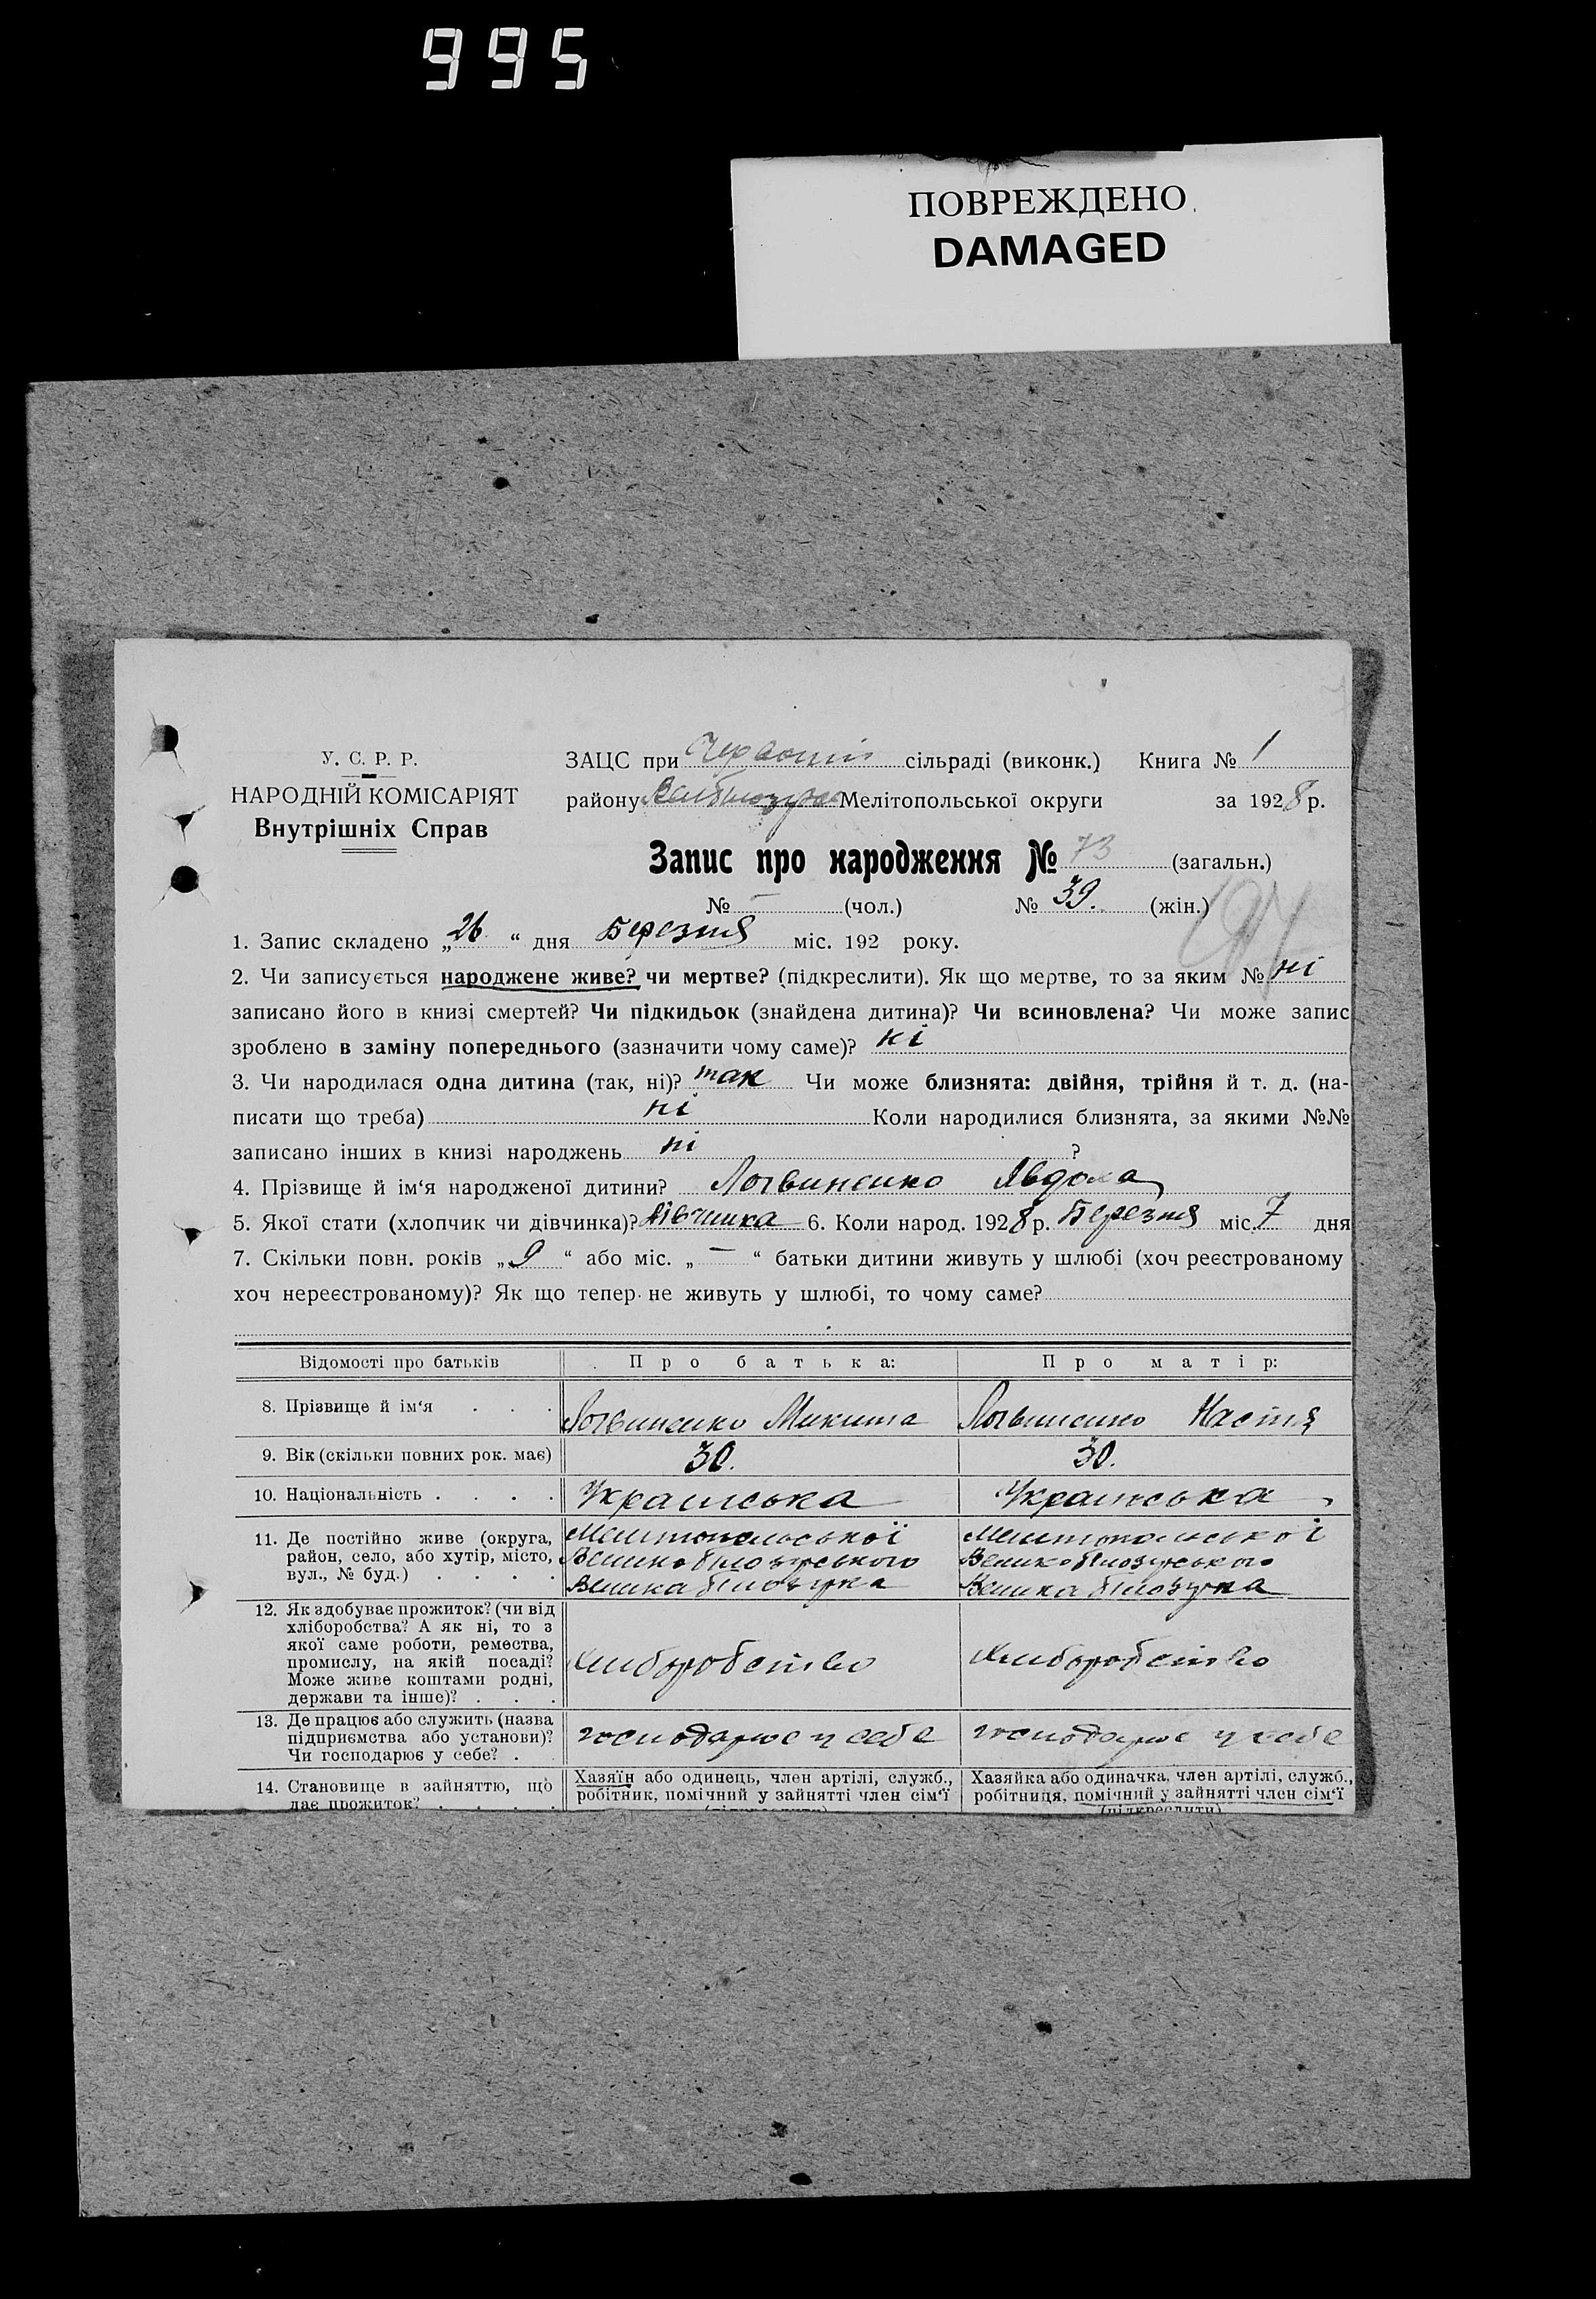 995
ПОВРЕЖДЕНО
DAMAGED
У. С. Р. Р.
НАРОДНІЙ КОМІСАРІЯТ
Внутрішніх Справ
ЗАЦС при Червоній сільраді (виконк.) Книга № 1
району Мелітопольської округи за 1928 р.
Запис про народження № 73 (загальн.)
№ — (чол.) № 39. (жін.)
1. Запис складено „26“ дня Березня міс. 192 року.
2. Чи записується народжене живе? чи мертве? (підкреслити). Як що мертве, то за яким № ні
записано його в книзі смертей? Чи підкидьок (знайдена дитина)? Чи всиновлена? Чи може запис
зроблено в заміну попереднього (зазначити чому саме)? ні
3. Чи народилася одна дитина (так, ні)? так Чи може близнята: двійня, трійня й т. д. (на-
писати що треба) ні Коли народилися близнята, за якими №№
записано інших в книзі народжень ні ?
4. Прізвище й ім‘я народженої дитини? Логвиненко Явдоха
5. Якої стати (хлопчик чи дівчинка)? дівчинка 6. Коли народ. 1928 р. Березня міс. 7 дня
7. Скільки повн. років „9“ або міс. „—“ батьки дитини живуть у шлюбі (хоч реєстрованому
хоч нереєстрованому)? Як що тепер не живуть у шлюбі, то чому саме?
Відомості про батьків Про батька: Про матір:
8. Прізвище й ім‘я . . . Логвиненко Микита Логвиненко Настя
9. Вік (скільки повних рок. має) 30. 30.
10. Національність . . . . Українська Українська
11. Де постійно живе (округа, Мелитопольської Мелитопольської
район, село, або хутір, місто, Великобілозурського Великобілозурського
вул., № буд.) . . . . Велика білозурка Велика білозурка
12. Як здобуває прожиток? (чи від
хліборобства? А як ні, то з
якої саме роботи, ремества,
промислу, на якій посаді?
Може живе коштами родні,
держави та інше)? . . .
хлиборобство хлиборобство
13. Де працює або служить (назва
підприємства або установи)?
Чи господарює у себе? .
господарює у себе господарює у себе
14. Становище в зайняттю, що Хазяїн або одинець, член артілі, служб., Хазяйка або одиначка, член артілі, служб.,
дає прожиток? . . . . робітник, помічний у зайнятті член сім‘ї робітниця, помічний у зайнятті член сім‘ї
(підкреслити) (підкреслити)